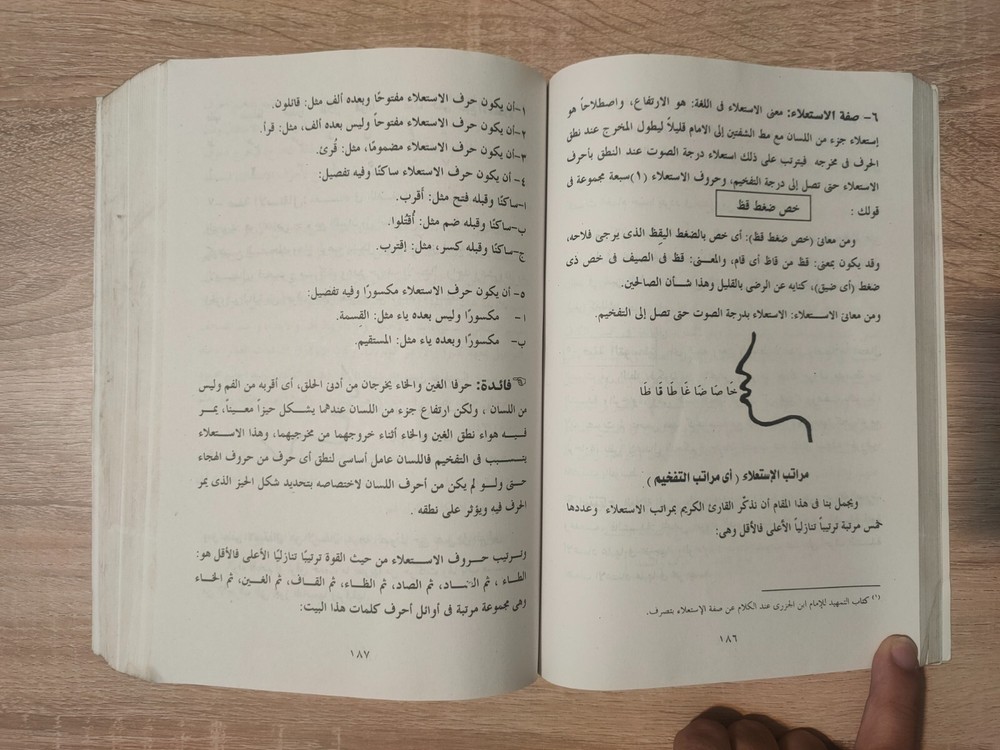 ٦- صفة الاستعلاء: معنى الاستعلاء فى اللغة: هو الارتفاع، واصطلاحاً هو
إستعلاء جزء من اللسان مع مط الشفتين إلى الامام قليلاً ليطول المخرج عند نطق
الحرف فى مخرجه فيترتب على ذلك استعلاء درجة الصوت عند النطق بأحرف
الاستعلاء حتى تصل إلى درجة التفخيم، وحروف الاستعلاء (١)سبعة مجموعة فى
قولك :
خص ضغط قظ
ومن معانى (خص ضغط قظ): أى خص بالضغط اليقِظ الذى يرجى فلاحه،
وقد يكون بمعنى: قظ من قاظ أى قام، والمعنى: قظ فى الصيف فى خص ذى
ضغط (أى ضيق)، كنايه عن الرضى بالقليل وهذا شأن الصالحين.
ومن معانى الاستعلاء: الاستعلاء بدرجة الصوت حتى تصل إلى التفخيم.
خَا صَا ضَا غَا طَا قَا ظَا
مراتب الإستعلاء ( أى مراتب التفخيم )
ويجمل بنا فى هذا المقام أن نذكّر القارئ الكريم بمراتب الاستعلاء وعددها
خمس مرتبة ترتيباً تنازلياً الأعلى فالأقل وهى:
(١) كتاب التمهيد للإمام ابن الجزرى عند الكلام عن صفة الإستعلاء بتصرف.
١٨٦
١-أن يكون حرف الاستعلاء مفتوحًا وبعده ألف مثل: قائلون.
٢-أن يكون حرف الاستعلاء مفتوحاً وليس بعده ألف، مثل: قرأ.
٣-أن يكون حرف الاستعلاء مضمومًا، مثل: قُرئ.
٤- أن يكون حرف الاستعلاء ساكنًا وفيه تفصيل:
ا-ساكنًا وقبله فتح مثل: أَقرب.
ب-ساكنًا وقبله ضم مثل: أُقتُلوا.
ج-ساكنًا وقبله كسر، مثل: إقترب.
٥- أن يكون حرف الاستعلاء مكسورًا وفيه تفصيل:
ا- مكسورًا وليس بعده ياء مثل: القِسمة.
ب- مكسورًا وبعده ياء مثل: المستقيم.
فائدة: حرفا الغين والخاء يخرجان من أدنى الحلق، أى أقربه من الفم وليس
من اللسان ، ولكن ارتفاع جزء من اللسان عندهما يشكل حيزاً معيناً، يمر
فيه هواء نطق الغين والخاء أثناء خروجهما من مخرجيهما، وهذا الاستعلاء
يتسبب فى التفخيم فاللسان عامل أساسى لنطق أى حرف من حروف الهجاء
حتى ولو لم يكن من أحرف اللسان لاختصاصه بتحديد شكل الحيز الذى يمر
الحرف فيه ويؤثر على نطقه .
وترتيب حروف الاستعلاء من حيث القوة ترتيبًا تنازليًا الأعلى فالأقل هو:
الطاء ، ثم الضاد، ثم الصاد، ثم الظاء، ثم القاف، ثم الغين، ثم الخاء
وهى مجموعة مرتبة فى أوائل أحرف كلمات هذا البيت:
١٨٧